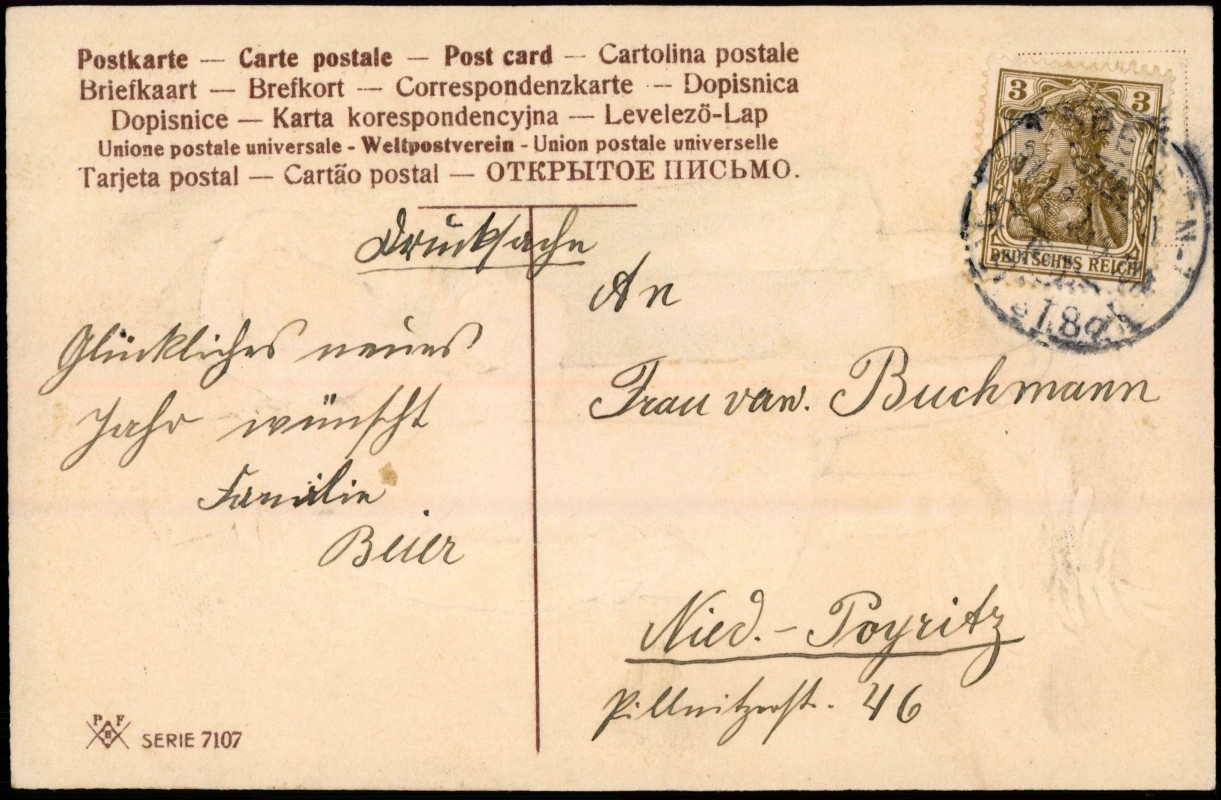 Postkarte — Carte postale — Post card — Cartolina postale
Briefkaart — Brefkort — Correspondenzkarte — Dopisnica
Dopisnice — Karta korespondencyjna — Levelező-Lap
Unione postale universale - Weltpostverein - Union postale universelle
Tarjeta postal — Cartão postal — ОТКРЫТОЕ ПИСЬМО.
3 3
DEUTSCHES REICH
Drucksache
Glückliches neues
Jahr wünscht
Familie
Beier
An
Frau Buchmann
Nied.-Poyritz
Pillnitzerst. 46
P F
B
SERIE 7107